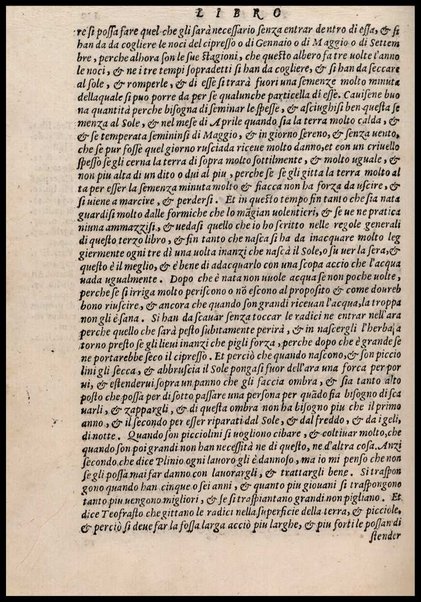 LIBRO
re si possa fare quel che gli sarà necessario senza entrar dentro di essa, & si
han da da cogliere le noci del cipresso o di Gennaio o di Maggio o di Settem
bre, perche alhora son le sue stagioni, che questo albero fa tre uolte l'anno
le noci, & ne i tre tempi sopradetti si han da cogliere, & si han da seccare
al sole, & romperle, & di esse si trarà fuori una semenze molto minuta
della quale si puo porre da per se qualunche particella di esse. Cauisene buo
na quantità perche bisogna di seminar le spesse, & asciughisi ben questa se
menza al Sole, & nel mese di Aprile quando sia la terra molto calda, &
& se temperata semininsi di Maggio, & in giorno sereno, & senza uento,
che se pur fosse quel giorno rusciada riceue molto danno, et con un criuello
spesso se gli cerna la terra di sopra molto sottilmente, & molto uguale, &
non piu alta di un dito o dui al piu, perche se se gli gitta la terra molto al
ta per esser la semenza minuta molto & fiacca non ha forza da uscire, &
si uiene a marcire, & perdersi. Et in questo tempo fin tanto che sia nata
guardisi molto dalle formiche che lo mãgian uolentieri, & se ue ne pratica
niuna ammazzisi, & uedasi quello che io ho scritto nelle regole generali
di questo terzo libro, & fin tanto che nasca si ha da inacquare molto leg
giermente ogni tre dì una uolta inanzi che nasca il Sole, o su uer la sera, &
questo è il meglio, & è bene di adacquarlo con una scopa accio che l'acqua
uada ugualmente. Dopo che è nata non uuole acqua se non poche uolte,
perche se si irriga molto periscono o nõ escono al proposito & come doureb
bono riuscire, & ancora che quando son grandi riceuan l'acqua, la troppa
non gli è sana. Si han da scauar senza toccar le radici ne entrar nell'ara
perche quello che sarà pesto subitamente perirà, & in nascergli l'herbaja
torno presto se gli lieui inanzi che pigli forza, perche dopo che è grande se
ne portarebbe seco il cipresso. Et perciò che quando nascono, & son piccio
lini gli secca, & abbruscia il Sole pongasi fuor dell'ara una forca per por
ui, & estenderui sopra un panno che gli faccia ombra, & sia tanto alto
posto che possa per di sotto passare una persona per quãdo fia bisogno di sca
uarli, & zappargli, & di questa ombra non ha bisogno piu che il primo
anno, & il secondo per esser riparati dal Sole, & dal freddo, & da i geli,
di notte. Quando son picciolini si uogliono cibare, & coltiuar molto, che
quando son poi grandi non han necessità ne di questo, ne d'altra cosa. Anzi
secondo che dice Plinio ogni lauoro gli è dannoso, ma io mi penso che non
se gli possa mai far danno con lauorargli, & trattargli bene. Si traspon
gono quando han cinque o sei anni, & quanto piu giouani si traspongono
tanto piu uengono migliori, & se si traspiantano grandi non pigliano. Et
dice Teofrasto che gittano le radici nella superficie della terra, & picciole,
& perciò si deue far la fossa larga acciò piu larghe, & piu forti le possan di
stender